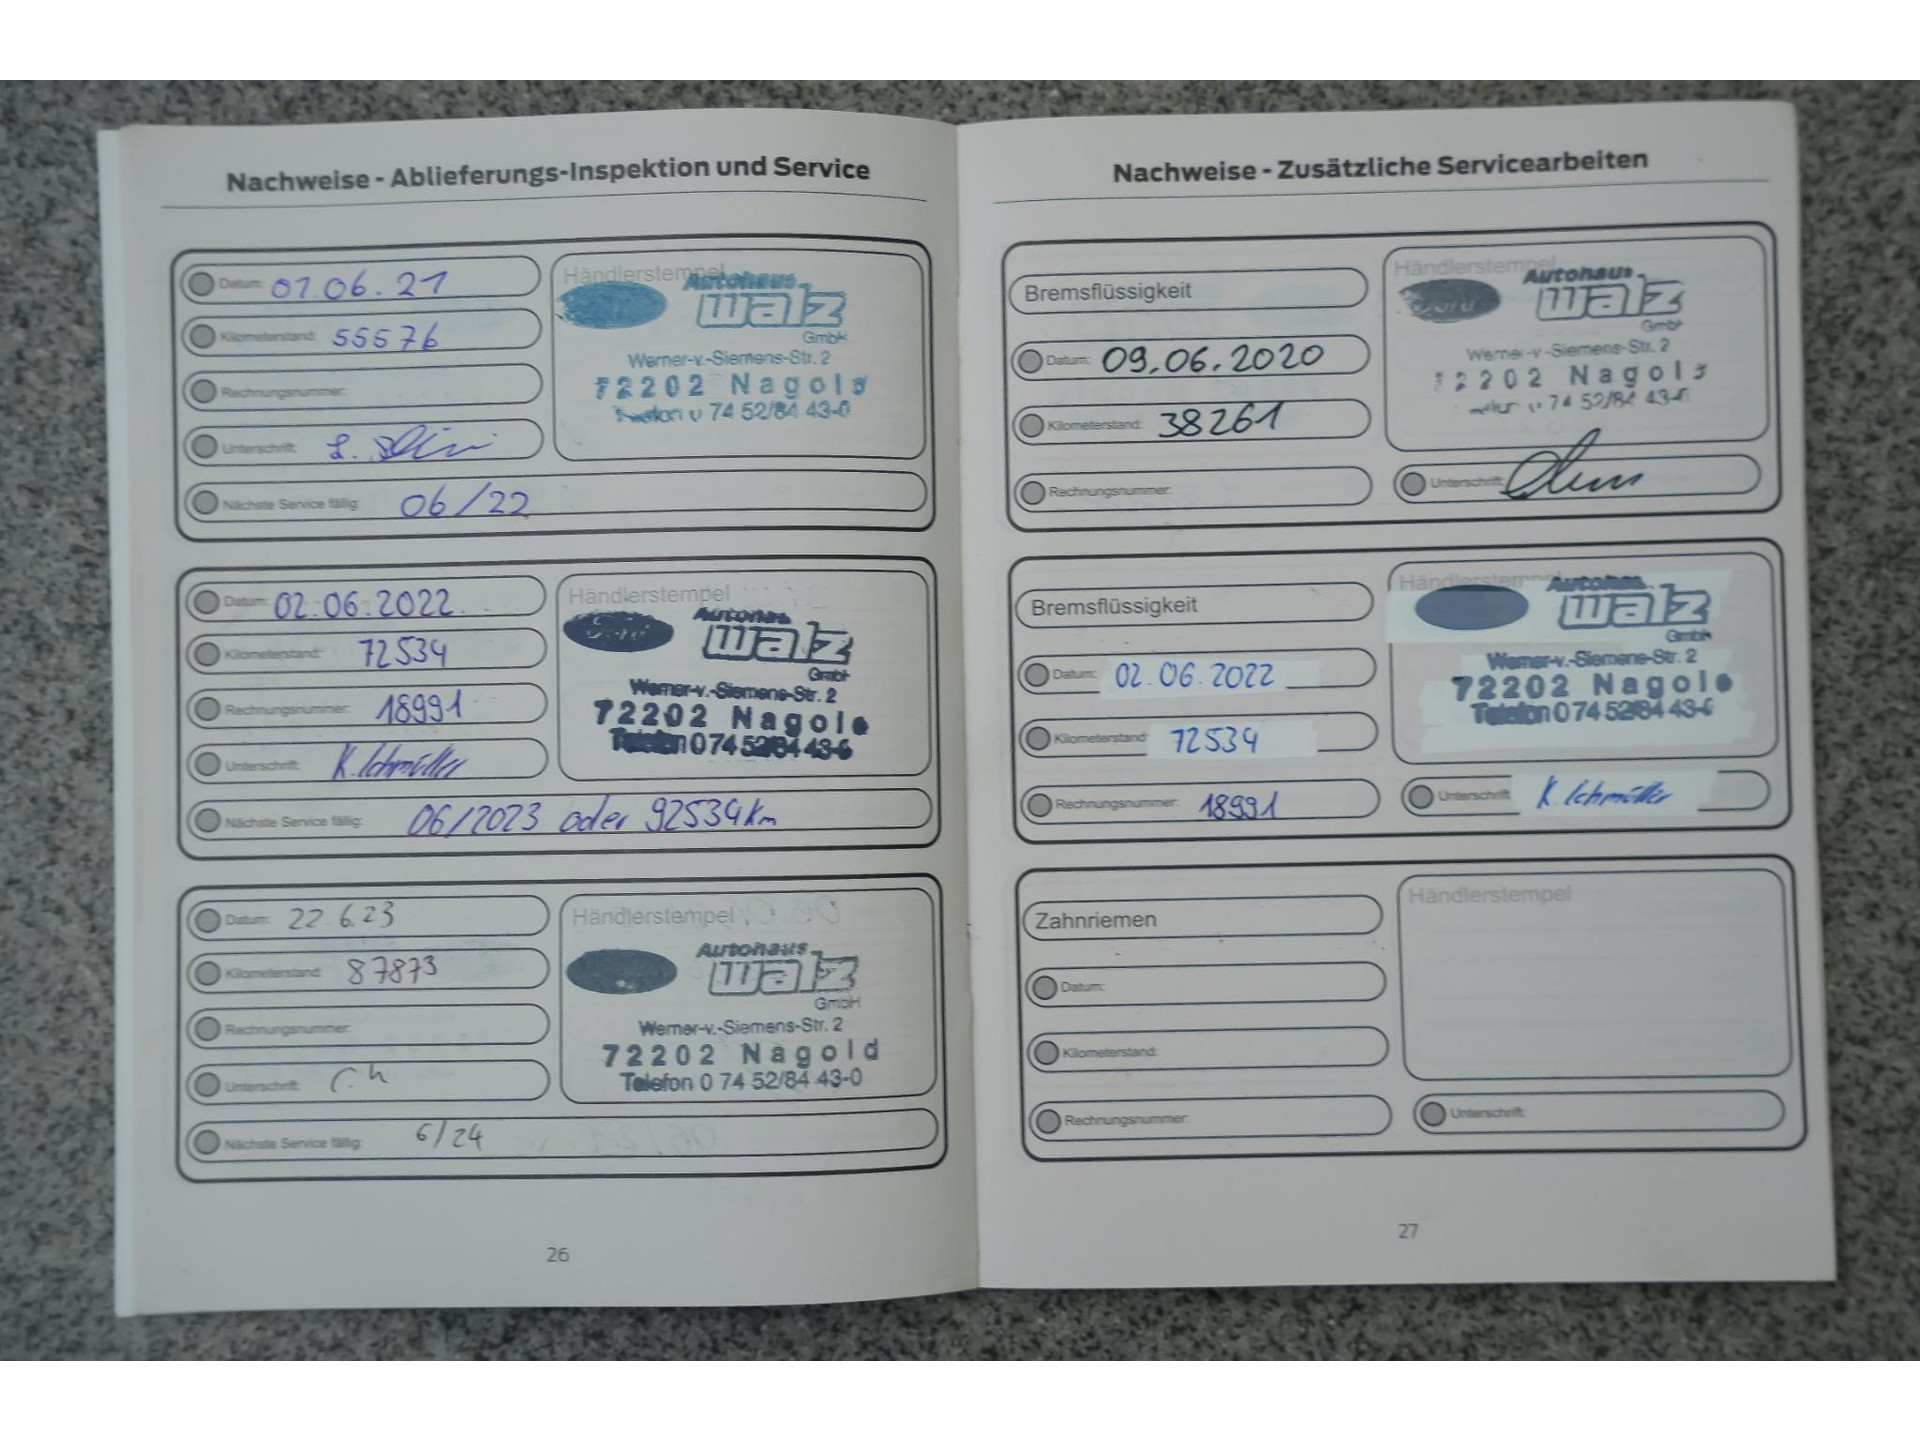 Nachweise - Ablieferungs-Inspektion und Service
Datum: 01.06.21
Kilometerstand: 55576
Rechnungsnummer:
Unterschrift:
Nächste Service fällig: 06/22
Händlerstempel
Autohaus
walz
GmbH
Werner-v.-Siemens-Str. 2
72202 Nagold
Telefon 0 74 52/84 43-0
Datum: 02.06.2022
Kilometerstand: 72534
Rechnungsnummer: 18991
Unterschrift: K. Schmüller
Nächste Service fällig: 06/2023 oder 92534 Km
Händlerstempel
Autohaus
walz
GmbH
Werner-v.-Siemens-Str. 2
72202 Nagold
Telefon 0 74 52/84 43-0
Datum: 22.6.23
Kilometerstand: 87873
Rechnungsnummer:
Unterschrift:
Nächste Service fällig: 6/24
Händlerstempel
Autohaus
walz
GmbH
Werner-v.-Siemens-Str. 2
72202 Nagold
Telefon 0 74 52/84 43-0
26
Nachweise - Zusätzliche Servicearbeiten
Bremsflüssigkeit
Datum: 09.06.2020
Kilometerstand: 38261
Rechnungsnummer:
Händlerstempel
Autohaus
walz
GmbH
Werner-v.-Siemens-Str. 2
72202 Nagold
74 52/84 43-0
Unterschrift:
Bremsflüssigkeit
Datum: 02.06.2022
Kilometerstand: 72534
Rechnungsnummer: 18991
Händlerstempel
Autohaus
walz
GmbH
Werner-v.-Siemens-Str. 2
72202 Nagold
Telefon 0 74 52/84 43-0
Unterschrift: K. Schmüller
Zahnriemen
Datum:
Kilometerstand:
Rechnungsnummer:
Händlerstempel
Unterschrift:
27